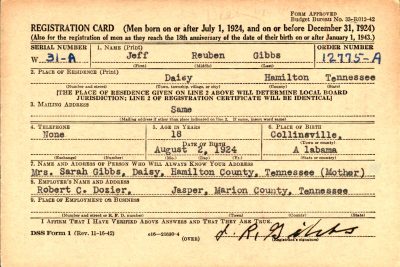 FORM APPROVED
Budget Bureau No. 33-R010-42
REGISTRATION CARD (Men born on or after July 1, 1924, and on or before December 31, 1924)
(Also for the registration of men as they reach the 18th anniversary of the date of their birth on or after January 1, 1943.)
SERIAL NUMBER 1. NAME (Print) ORDER NUMBER
W 31-A Jeff Reuben Gibbs 12775-A
(First) (Middle) (Last)
2. PLACE OF RESIDENCE (Print)
Daisy Hamilton Tennessee
(Number and street) (Town, township, village, or city) (County) (State)
[THE PLACE OF RESIDENCE GIVEN ON LINE 2 ABOVE WILL DETERMINE LOCAL BOARD
JURISDICTION; LINE 2 OF REGISTRATION CERTIFICATE WILL BE IDENTICAL]
3. MAILING ADDRESS
Same
[Mailing address if other than place indicated on line 2. If same, insert word same]
4. TELEPHONE 5. AGE IN YEARS 6. PLACE OF BIRTH
None 18 Collinsville,
DATE OF BIRTH (Town or county)
August 2, 1924 Alabama
(Exchange) (Number) (Mo.) (Day) (Yr.) (State or country)
7. NAME AND ADDRESS OF PERSON WHO WILL ALWAYS KNOW YOUR ADDRESS
Mrs. Sarah Gibbs, Daisy, Hamilton County, Tennessee (Mother)
8. EMPLOYER'S NAME AND ADDRESS
Robert C. Dozier, Jasper, Marion County, Tennessee
9. PLACE OF EMPLOYMENT OR BUSINESS
(Number and street or R. F. D. number) (Town) (County) (State)
I AFFIRM THAT I HAVE VERIFIED ABOVE ANSWERS AND THAT THEY ARE TRUE.
DSS Form 1 (Rev. 11-16-42) (OVER) J. R. Gibbs
(Registrant's signature)